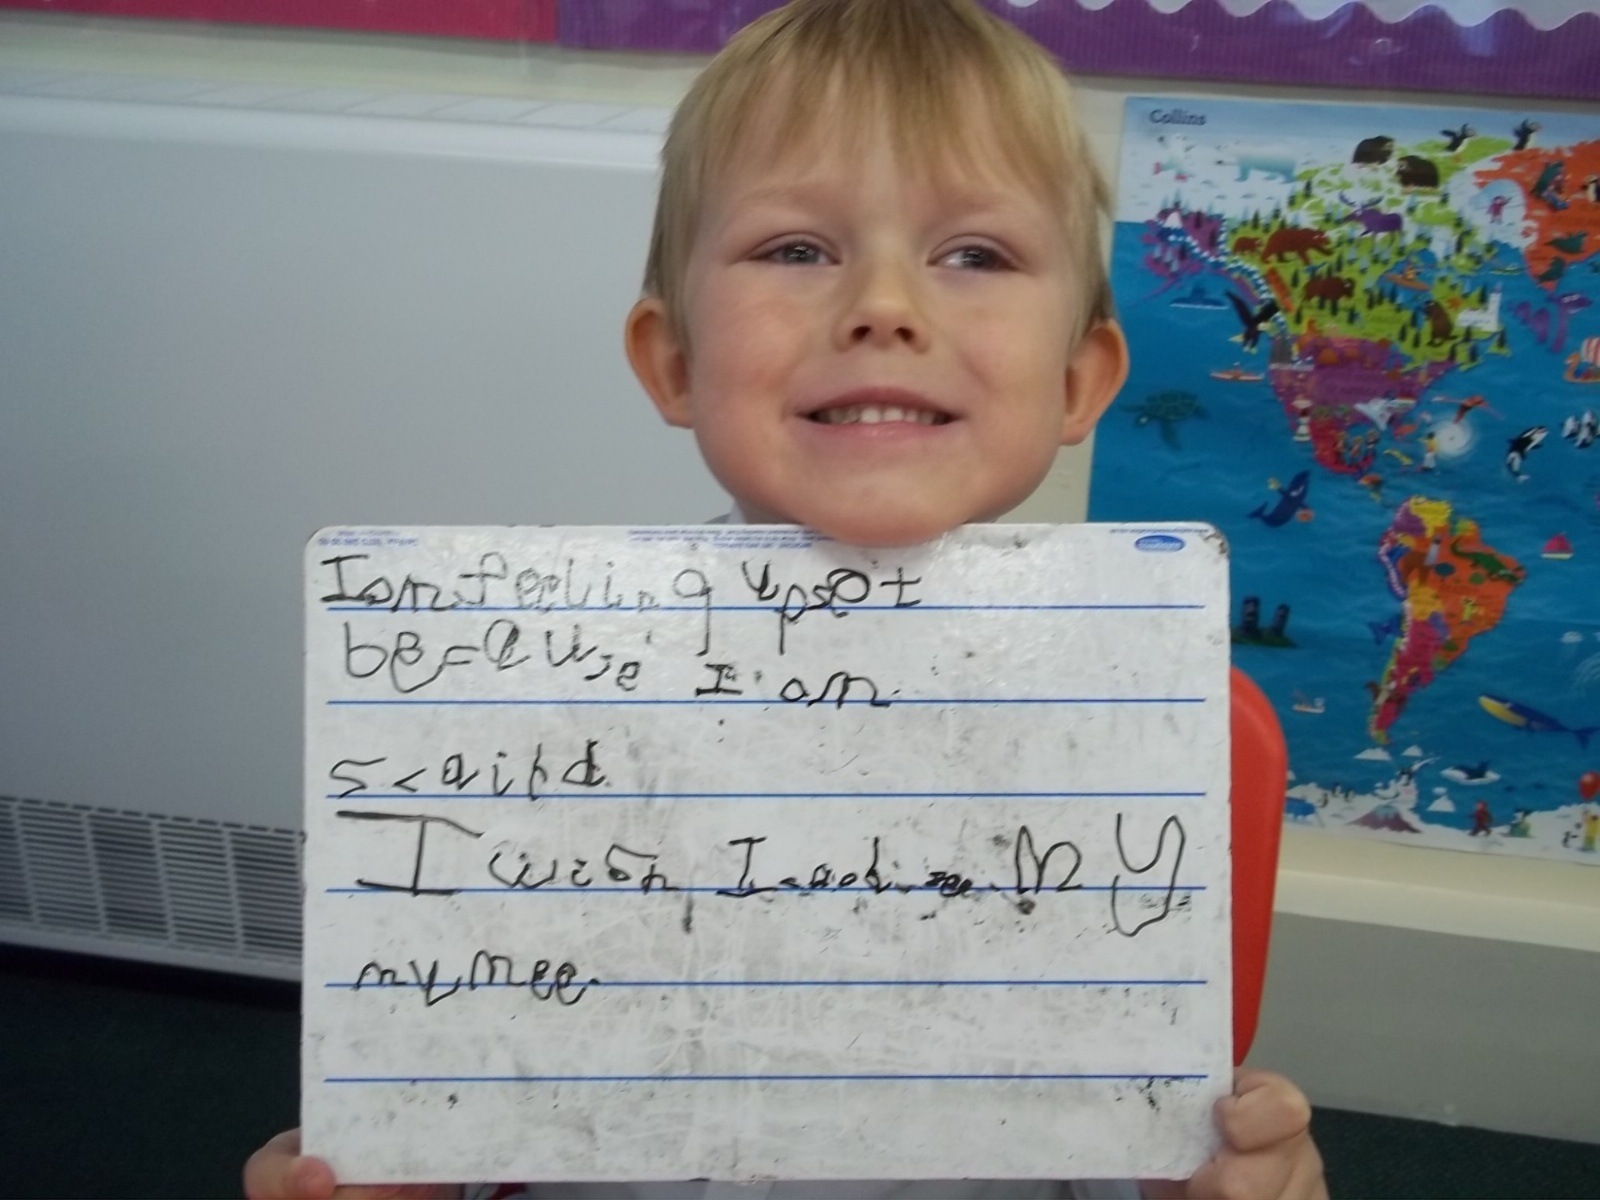 Collins
I am feeling upset
because I am
scaird
I wish I cod see my
my mee.